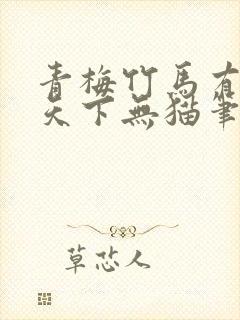 青梅竹馬有
天下無貓筆
草芯人